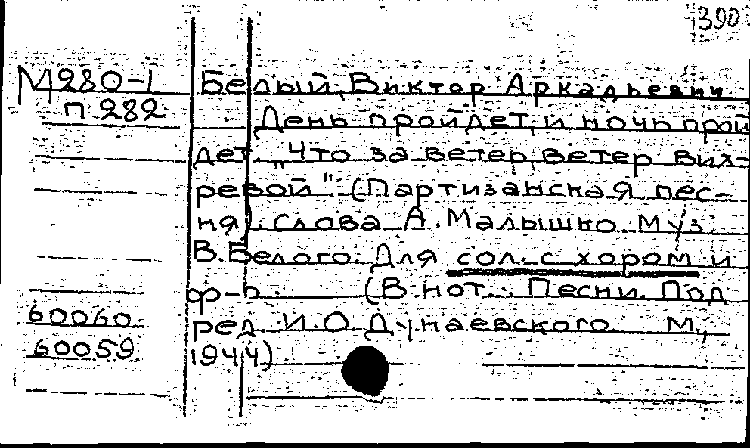 390
М280-1 Белый, Виктор Аркадьевич
П 282 День пройдет, и ночь прой
дет. „Что за ветер, ветер вих-
ревой" (Партизанская пес-
ня). слова А. Малышко. Муз
В. Белого. Для сол. с хором и
ф-п. (В нот.: Песни. Под
60060 ред. И.О. Дунаевского М.,
60059 1944)